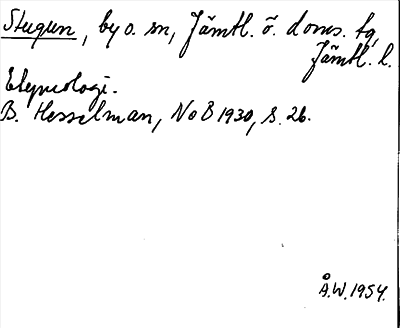 Stugun, by o. sn, Jämtl. ö. doms. tg,
Jämtl. l.
Etymologi.
B. Hesselman, NoB 1930, s. 26.
Å.W. 1954.